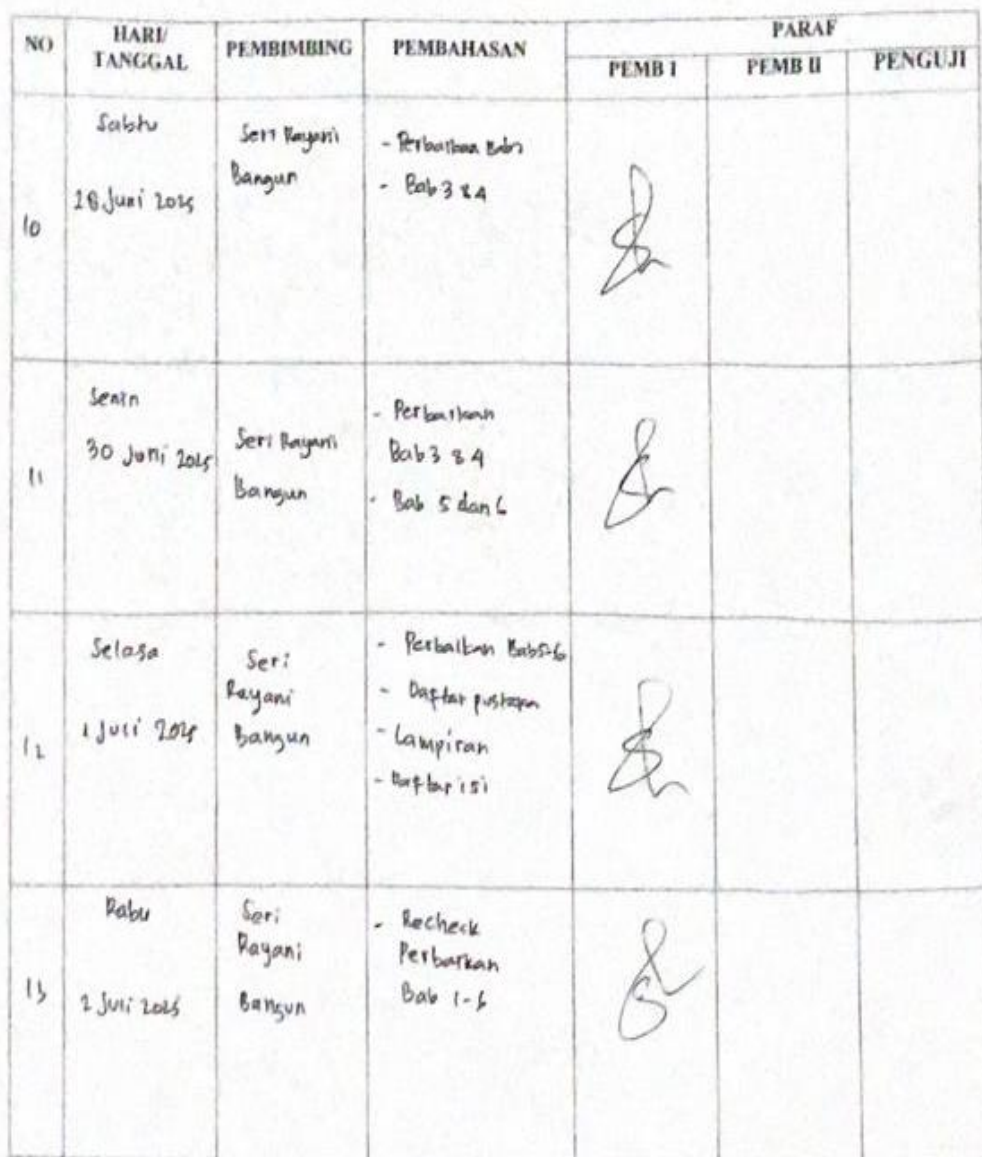 NO
HARI/
TANGGAL
PEMBIMBING
PEMBAHASAN
PARAF
PEMB I
PEMB II
PENGUJI
10
Sabtu
28 Juni 2025
Seri Rayani
Bangun
- Perbaikan Bab
- Bab 3 & 4
11
Senin
30 Juni 2025
Seri Rayani
Bangun
- Perbaikan
Bab 3 & 4
- Bab 5 dan 6
12
Selasa
1 Juli 2025
Seri
Rayani
Bangun
- Perbaikan Bab 5-6
- Daftar pustaka
- Lampiran
- Daftar isi
13
Rabu
2 Juli 2025
Seri
Rayani
Bangun
- Recheck
Perbaikan
Bab 1-6